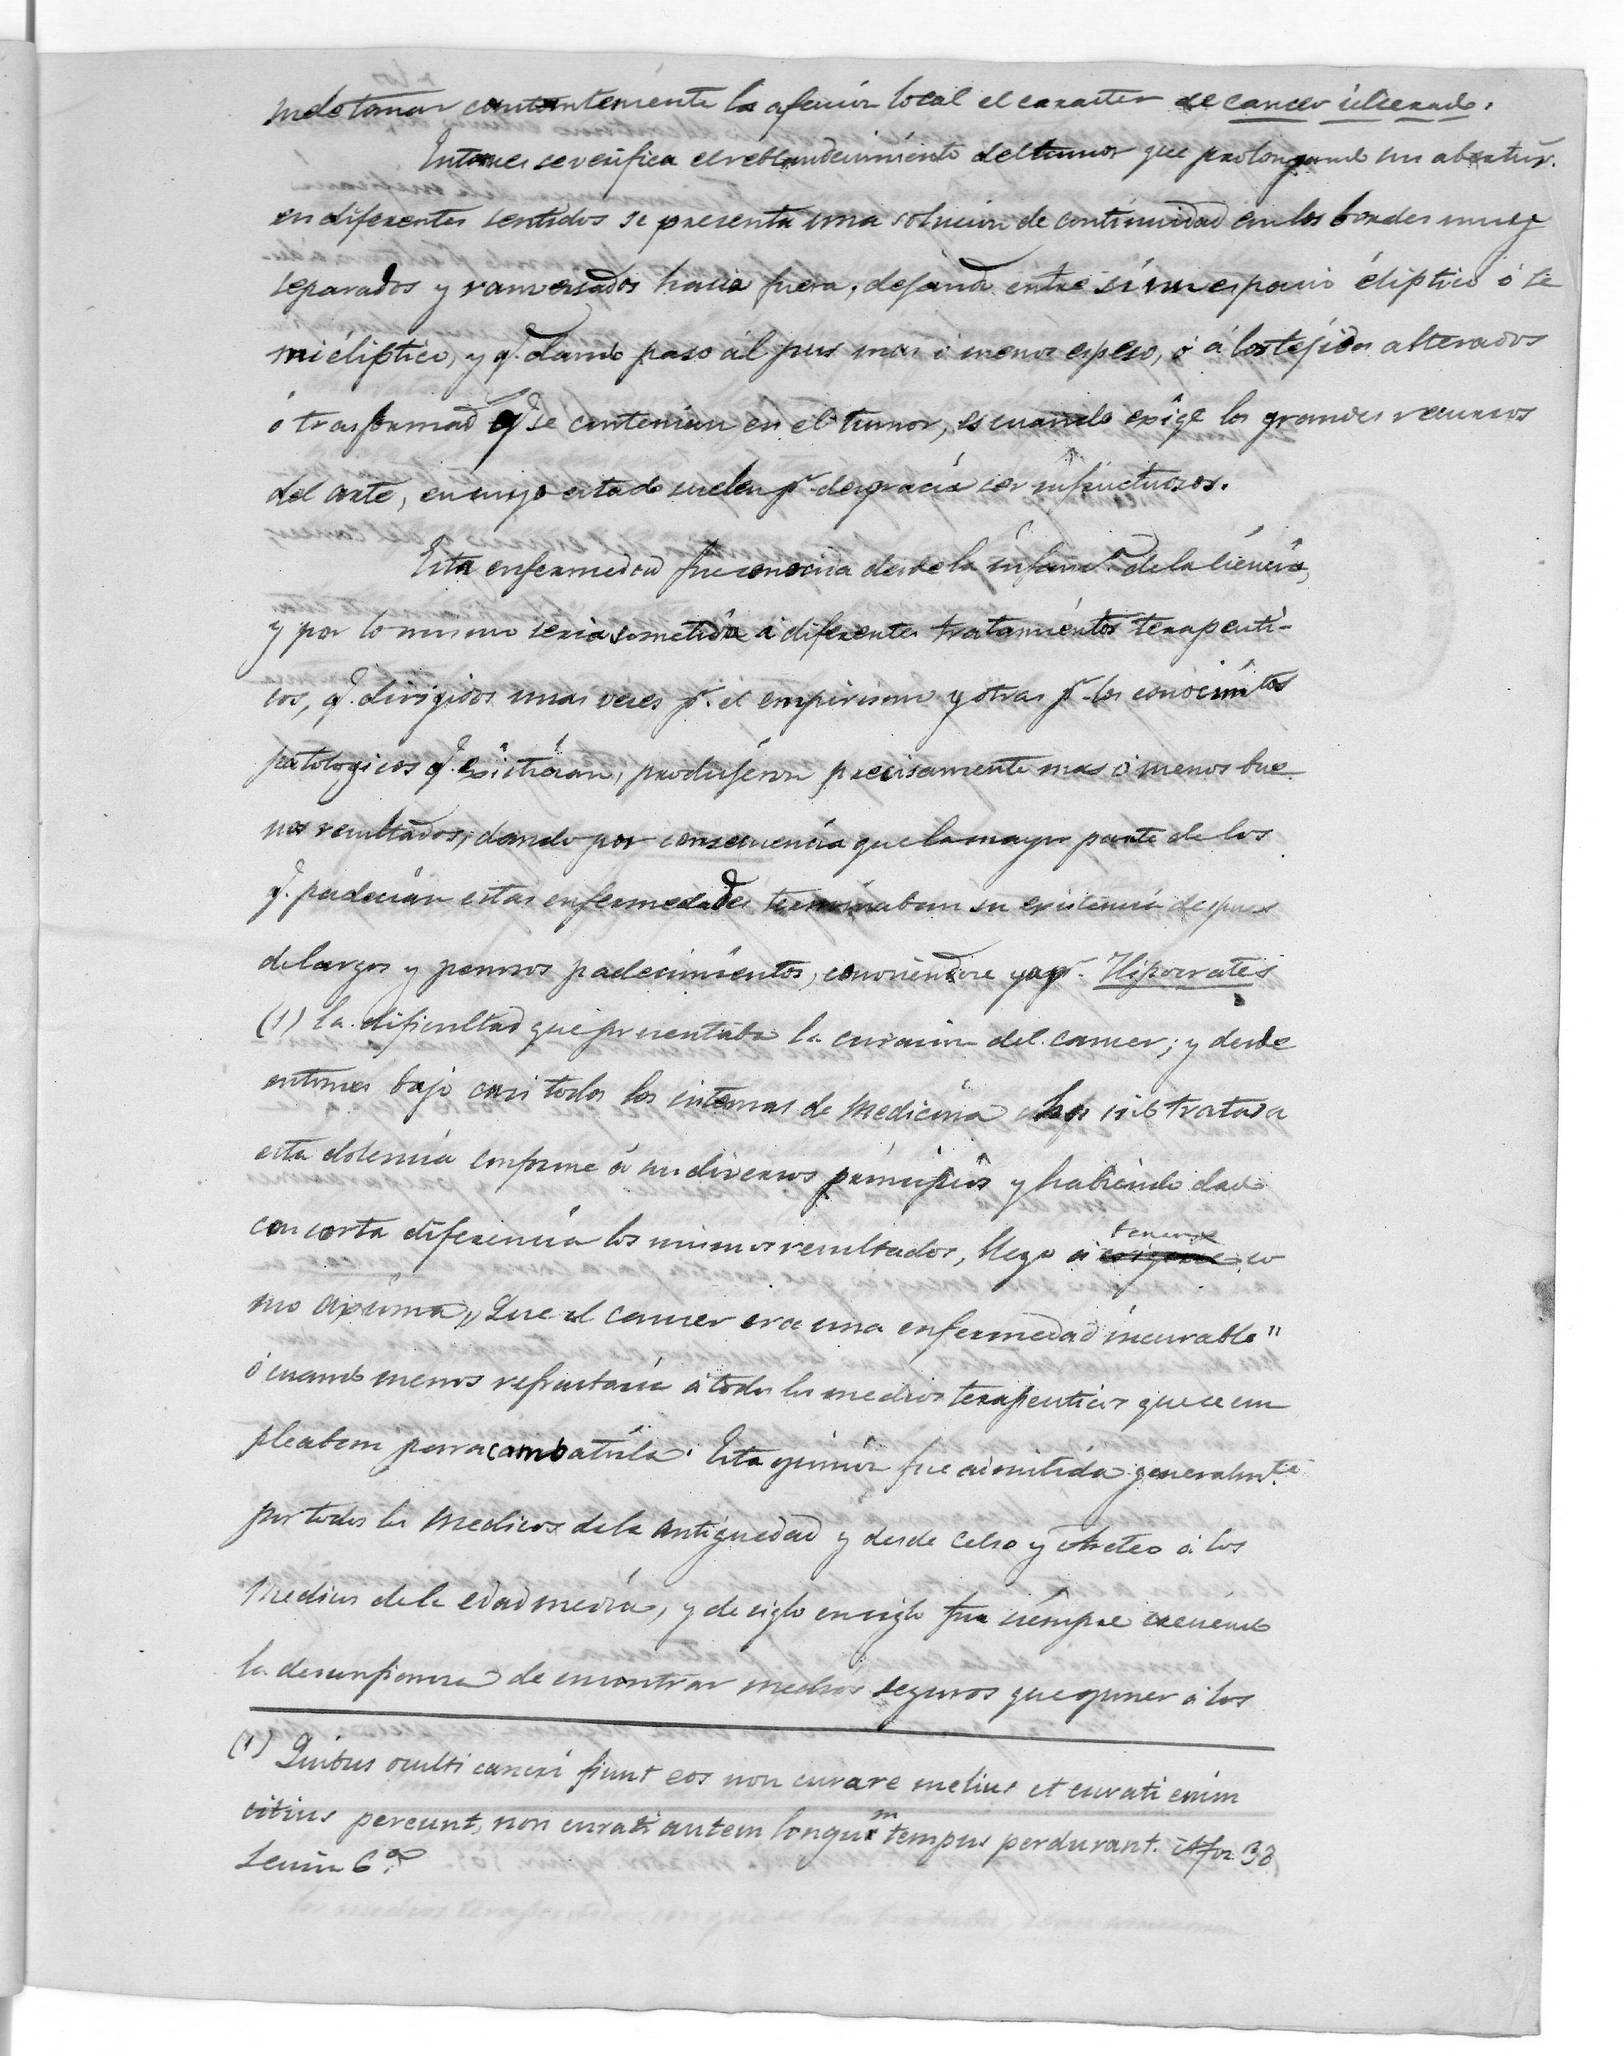 tomar constantemente la afeccion local el caracter de cancer ulcerado.
Entonces se verifica el reblandecimiento del tumor que prolongando sus abertur.
en diferentes sentidos se presenta una solucion de continuidad con los bordes muy
separados y ranversados hacia fuera, dejando entre si un espacio eliptico ó se
mieliptico, y q.e dando paso al pus mas ó menos espeso, ó á los tejidos alterados
ó trasformad.s q.e se contenian en el tumor, es cuando exige los grandes recursos
del arte, en cuyo estado suelen p.r desgracia ser infructuosos.
Esta enfermedad fue conocida desde la infanc.a de la ciencia,
y por lo mismo seria sometida á diferentes tratamientos terapeuti-
cos, q.e dirigidos unas veces p.r el empirismo y otras p.r los conocim.tos
patologicos q.e existieran, produjeron precisamente mas ó menos bue
nos resultados, dando por consecuencia que la mayor parte de los
q.e padecian estas enfermedades terminaban su existencia despues
de largos y penosos padecimientos, conociendose ya p.r Hipocrates
(1) la dificultad que presentaba la curacion del cancer; y desde
entonces bajo casi todos los sistemas de medicina sido tratada
esta dolencia conforme á sus diversos principios y habiendo dado
con corta diferencia los mismos resultados, llego á tenerse co
mo axioma,, Que el cancer era una enfermedad incurable"
ó cuando menos refractaria á todos los medios terapeuticos que se em
pleaban para combatirla. Esta opinion fue admitida generalm.te
por todos los medicos de la antiguedad y desde Celso y Areteo á los
medicos de la edad media, y de siglo en siglo fue siempre creciendo
la desconfianza de encontrar medios seguros que oponer á los
(1) Quibus oculti cancri fiunt eos non curare melius et curati enim
citius pereunt, non curati autem longum tempus perdurant. Afor. 38
Sección 6.a